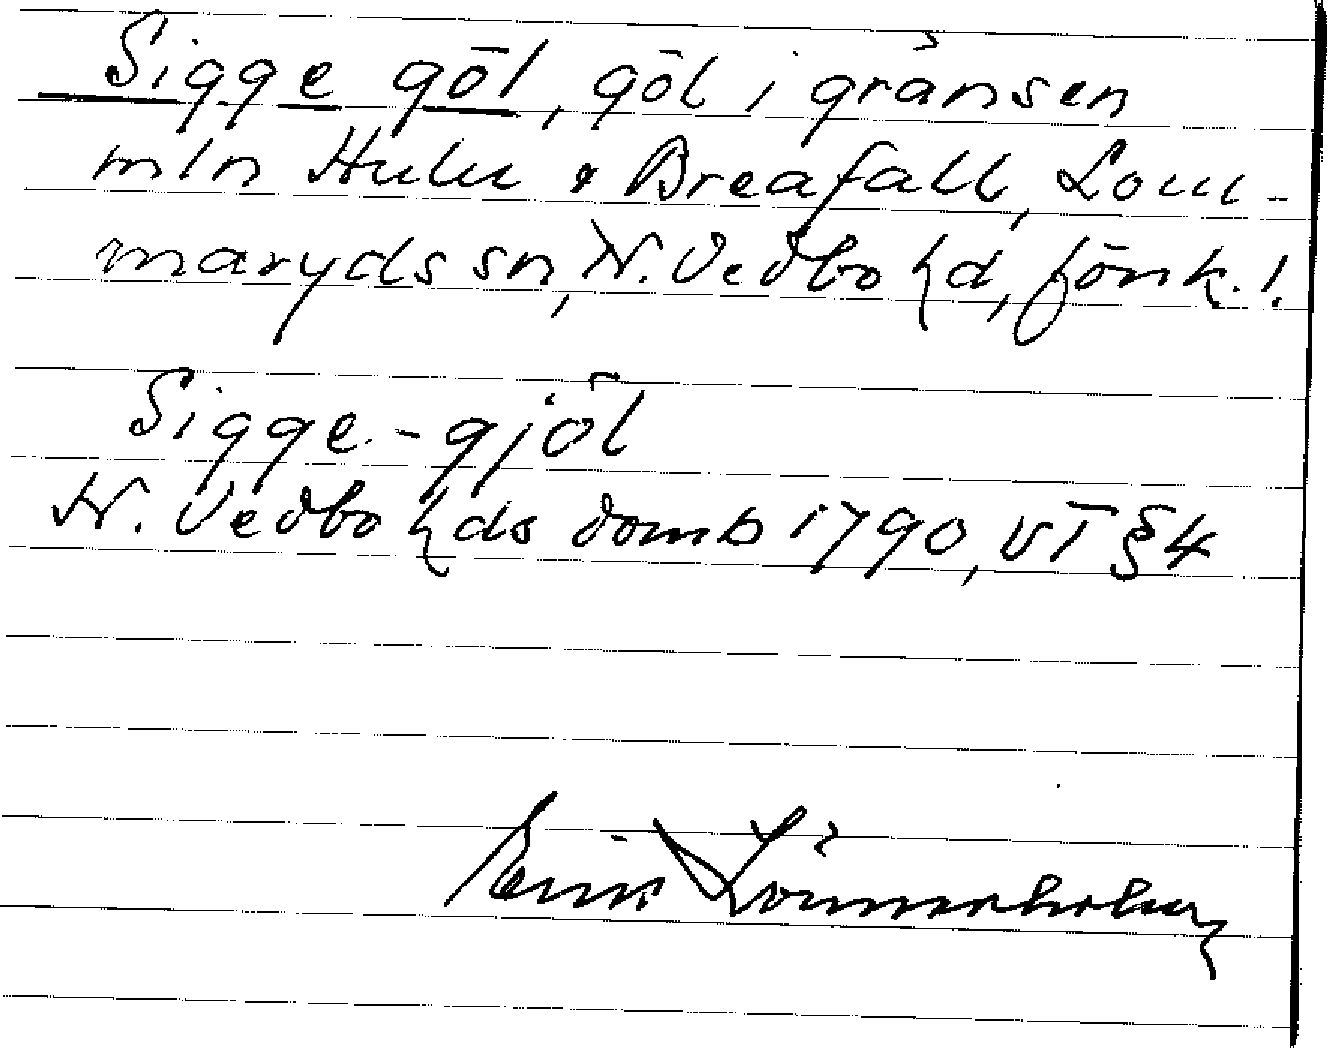 Sigge göl, göl i gränsen
mln Hulu & Breafall, Lom-
maryds sn, N. Vedbo hd, Jönk. l.
Sigge-gjöl
N. Vedbo hds domb 1790, VT § 4
Einar Lönnerholm